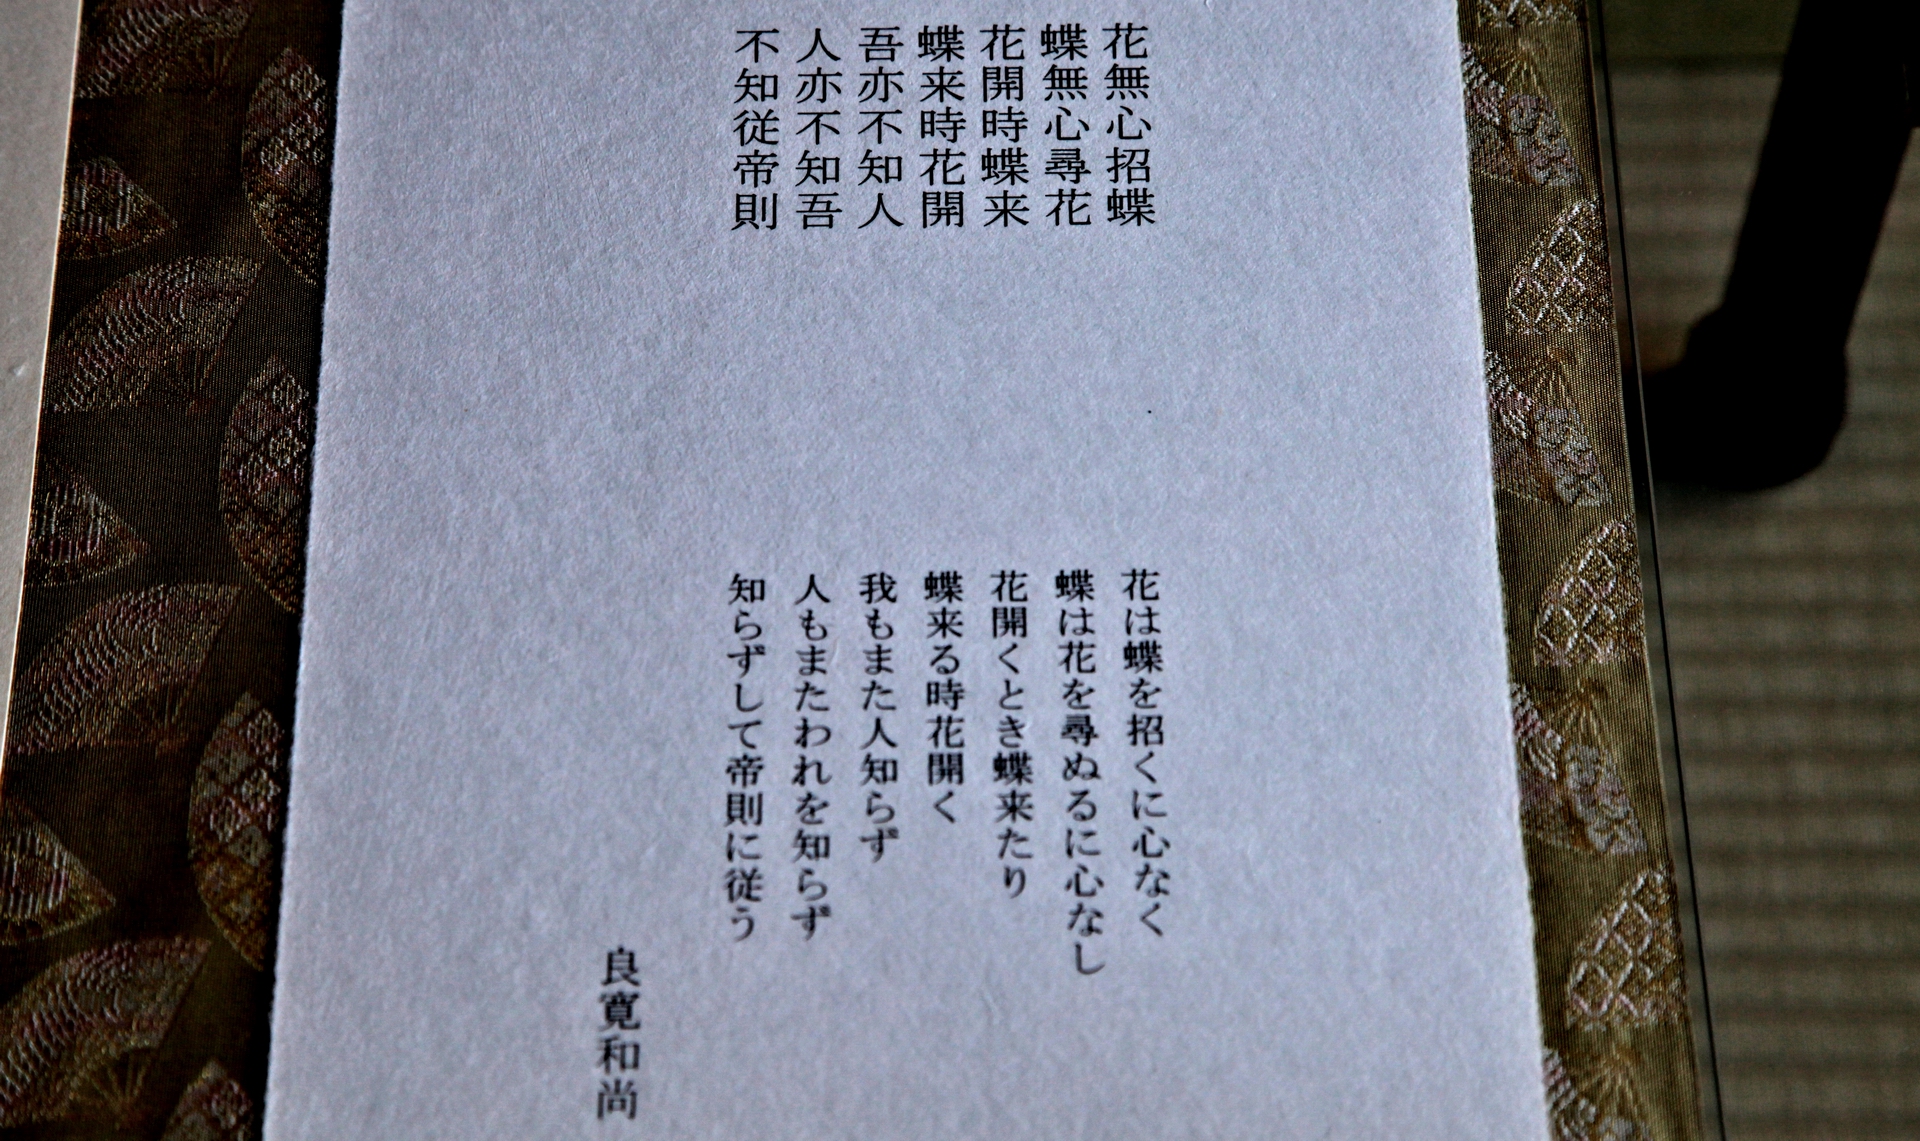 花無心招蝶
蝶無心尋花
花開時蝶来
蝶来時花開
吾亦不知人
人亦不知吾
不知従帝則
花は蝶を招くに心なく
蝶は花を尋ぬるに心なし
花開くとき蝶来たり
蝶来る時花開く
我もまた人知らず
人もまたわれを知らず
知らずして帝則に従う
良寛和尚